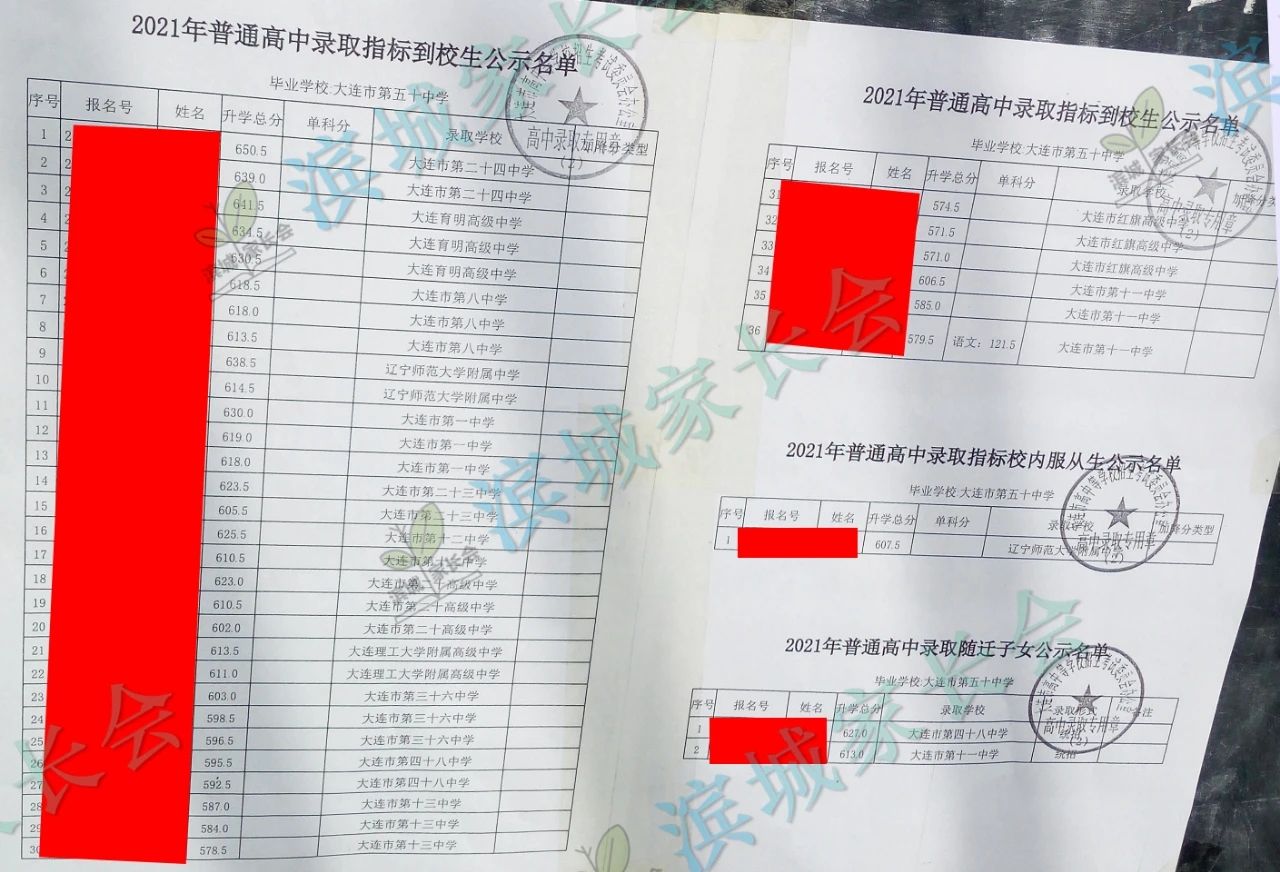 2021年普通高中录取指标到校生公示名单
毕业学校:大连市第五十中学
序号 报名号 姓名 升学总分 单科分 录取学校 加降分类型
1 2 650.5 大连市第二十四中学
2 2 639.0 大连市第二十四中学
3 2 641.5 大连育明高级中学
4 2 634.5 大连育明高级中学
5 2 630.5 大连育明高级中学
6 2 618.5 大连市第八中学
7 2 618.0 大连市第八中学
8 613.5 大连市第八中学
9 638.5 辽宁师范大学附属中学
10 614.5 辽宁师范大学附属中学
11 630.0 大连市第一中学
12 619.0 大连市第一中学
13 618.0 大连市第一中学
14 623.5 大连市第二十三中学
15 605.5 大连市第二十三中学
16 625.5 大连市第十二中学
17 610.5 大连市第十二中学
18 623.0 大连市第二十高级中学
19 610.5 大连市第二十高级中学
20 602.0 大连市第二十高级中学
21 613.5 大连理工大学附属高级中学
22 611.0 大连理工大学附属高级中学
23 603.0 大连市第三十六中学
24 598.5 大连市第三十六中学
25 596.5 大连市第三十六中学
26 595.5 大连市第四十八中学
27 592.5 大连市第四十八中学
28 587.0 大连市第十三中学
29 584.0 大连市第十三中学
30 578.5 大连市第十三中学
2021年普通高中录取指标到校生公示名单
毕业学校:大连市第五十中学
序号 报名号 姓名 升学总分 单科分 录取学校 加降分类
31 574.5 大连市红旗高级中学
32 571.5 大连市红旗高级中学
33 571.0 大连市红旗高级中学
34 606.5 大连市第十一中学
35 585.0 大连市第十一中学
36 579.5 语文：121.5 大连市第十一中学
2021年普通高中录取指标校内服从生公示名单
毕业学校:大连市第五十中学
序号 报名号 姓名 升学总分 单科分 录取学校 加降分类型
1 607.5 辽宁师范大学附属中学
2021年普通高中录取随迁子女公示名单
毕业学校:大连市第五十中学
序号 报名号 姓名 升学总分 录取学校 录取形式 备注
1 627.0 大连市第四十八中学 统招
2 613.0 大连市第十一中学 统招
高中录取专用章
(2)
高中录取专用章
(2)
高中录取专用章
(2)
高中录取专用章
(2)
滨城家长会
滨城家长会
滨城家长会